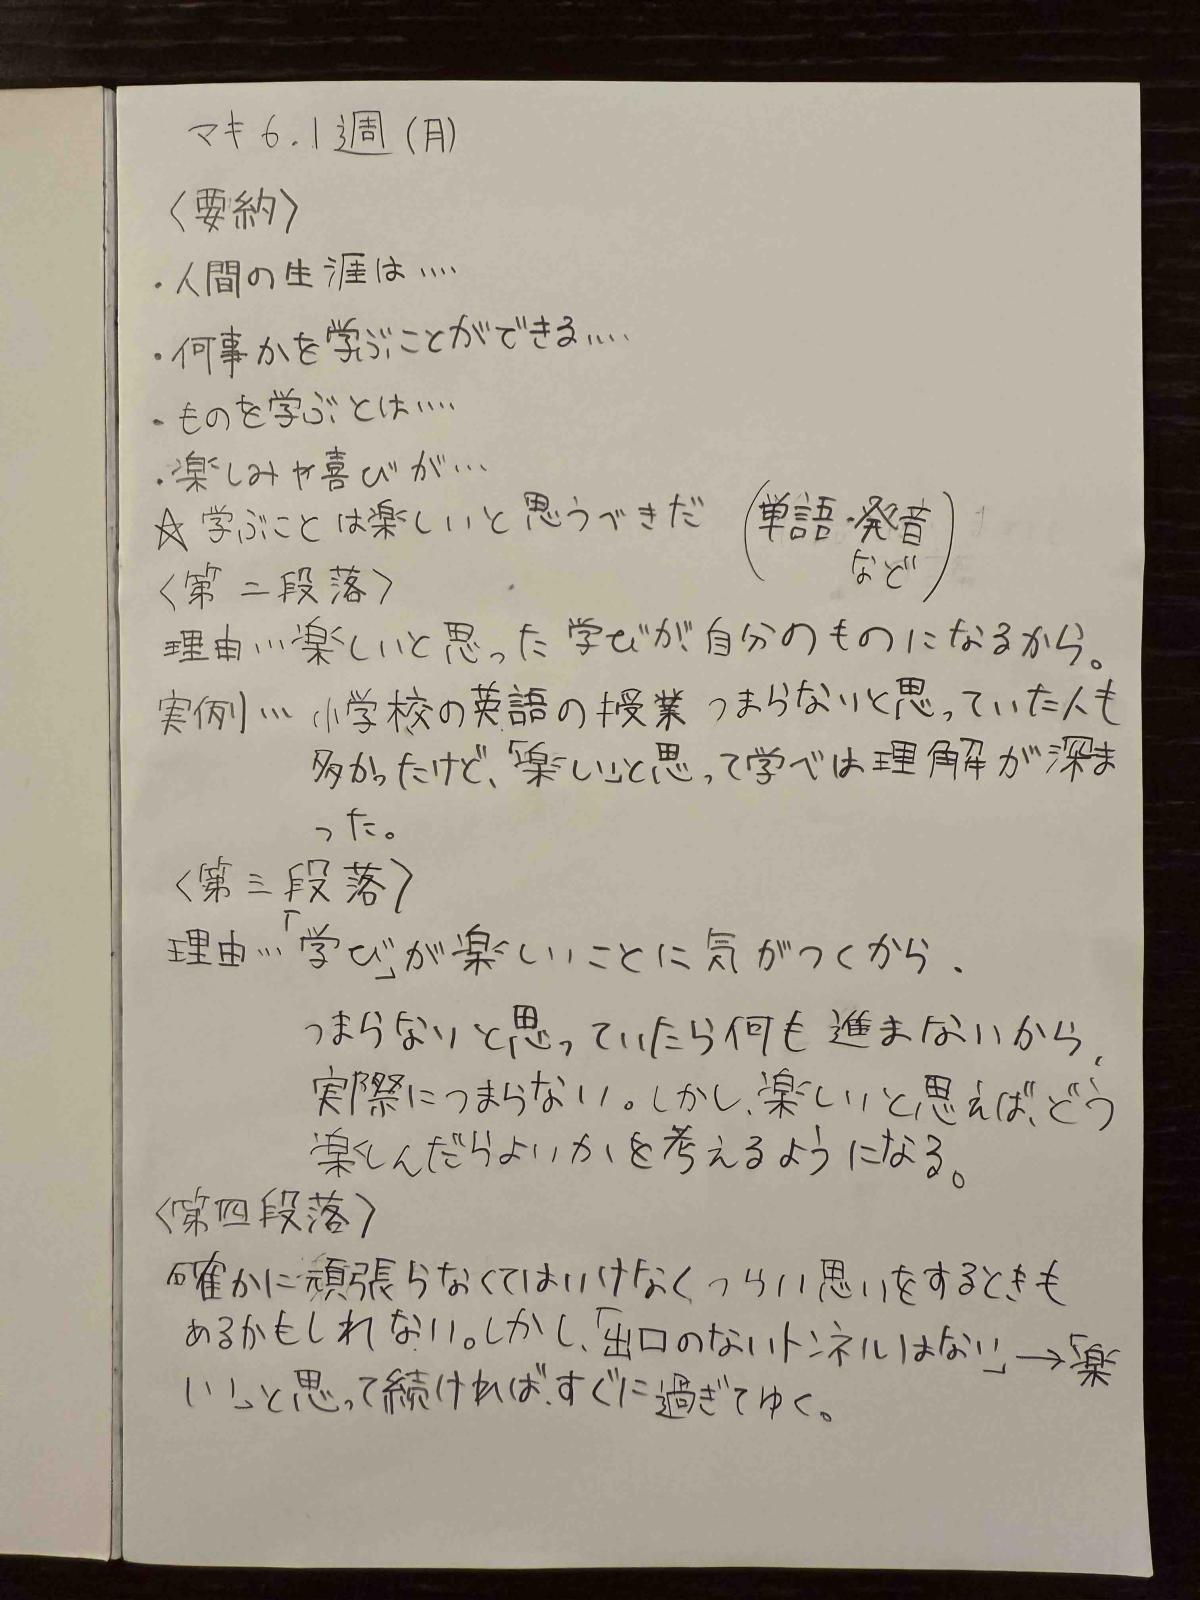 マキ6.1週(月)
〈要約〉
・人間の生涯は‥‥
・何事かを学ぶことができる‥‥
・ものを学ぶとは‥‥
・楽しみや喜びが‥‥
☆学ぶことは楽しいと思うべきだ (単語・発音
など)
〈第二段落〉
理由…楽しいと思った学びが自分のものになるから。
実例… 小学校の英語の授業 つまらないと思っていた人も
多かったけど、「楽しい」と思って学べは理解が深ま
った。
〈第三段落〉
理由…「学び」が楽しいことに気がつくから、
つまらないと思っていたら何も進まないから、
実際につまらない。しかし、楽しいと思えば、どう
楽しんだらよいかを考えるようになる。
〈第四段落〉
確かに頑張らなくてはいけなくつらい思いをするときも
あるかもしれない。しかし、「出口のないトンネルはない」→「楽
い」と思って続ければ、すぐに過ぎてゆく。